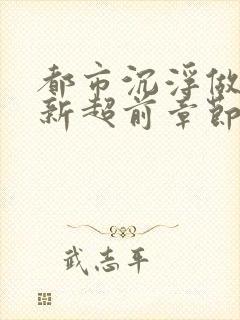 都市沉浮做
新超前章節
武志平